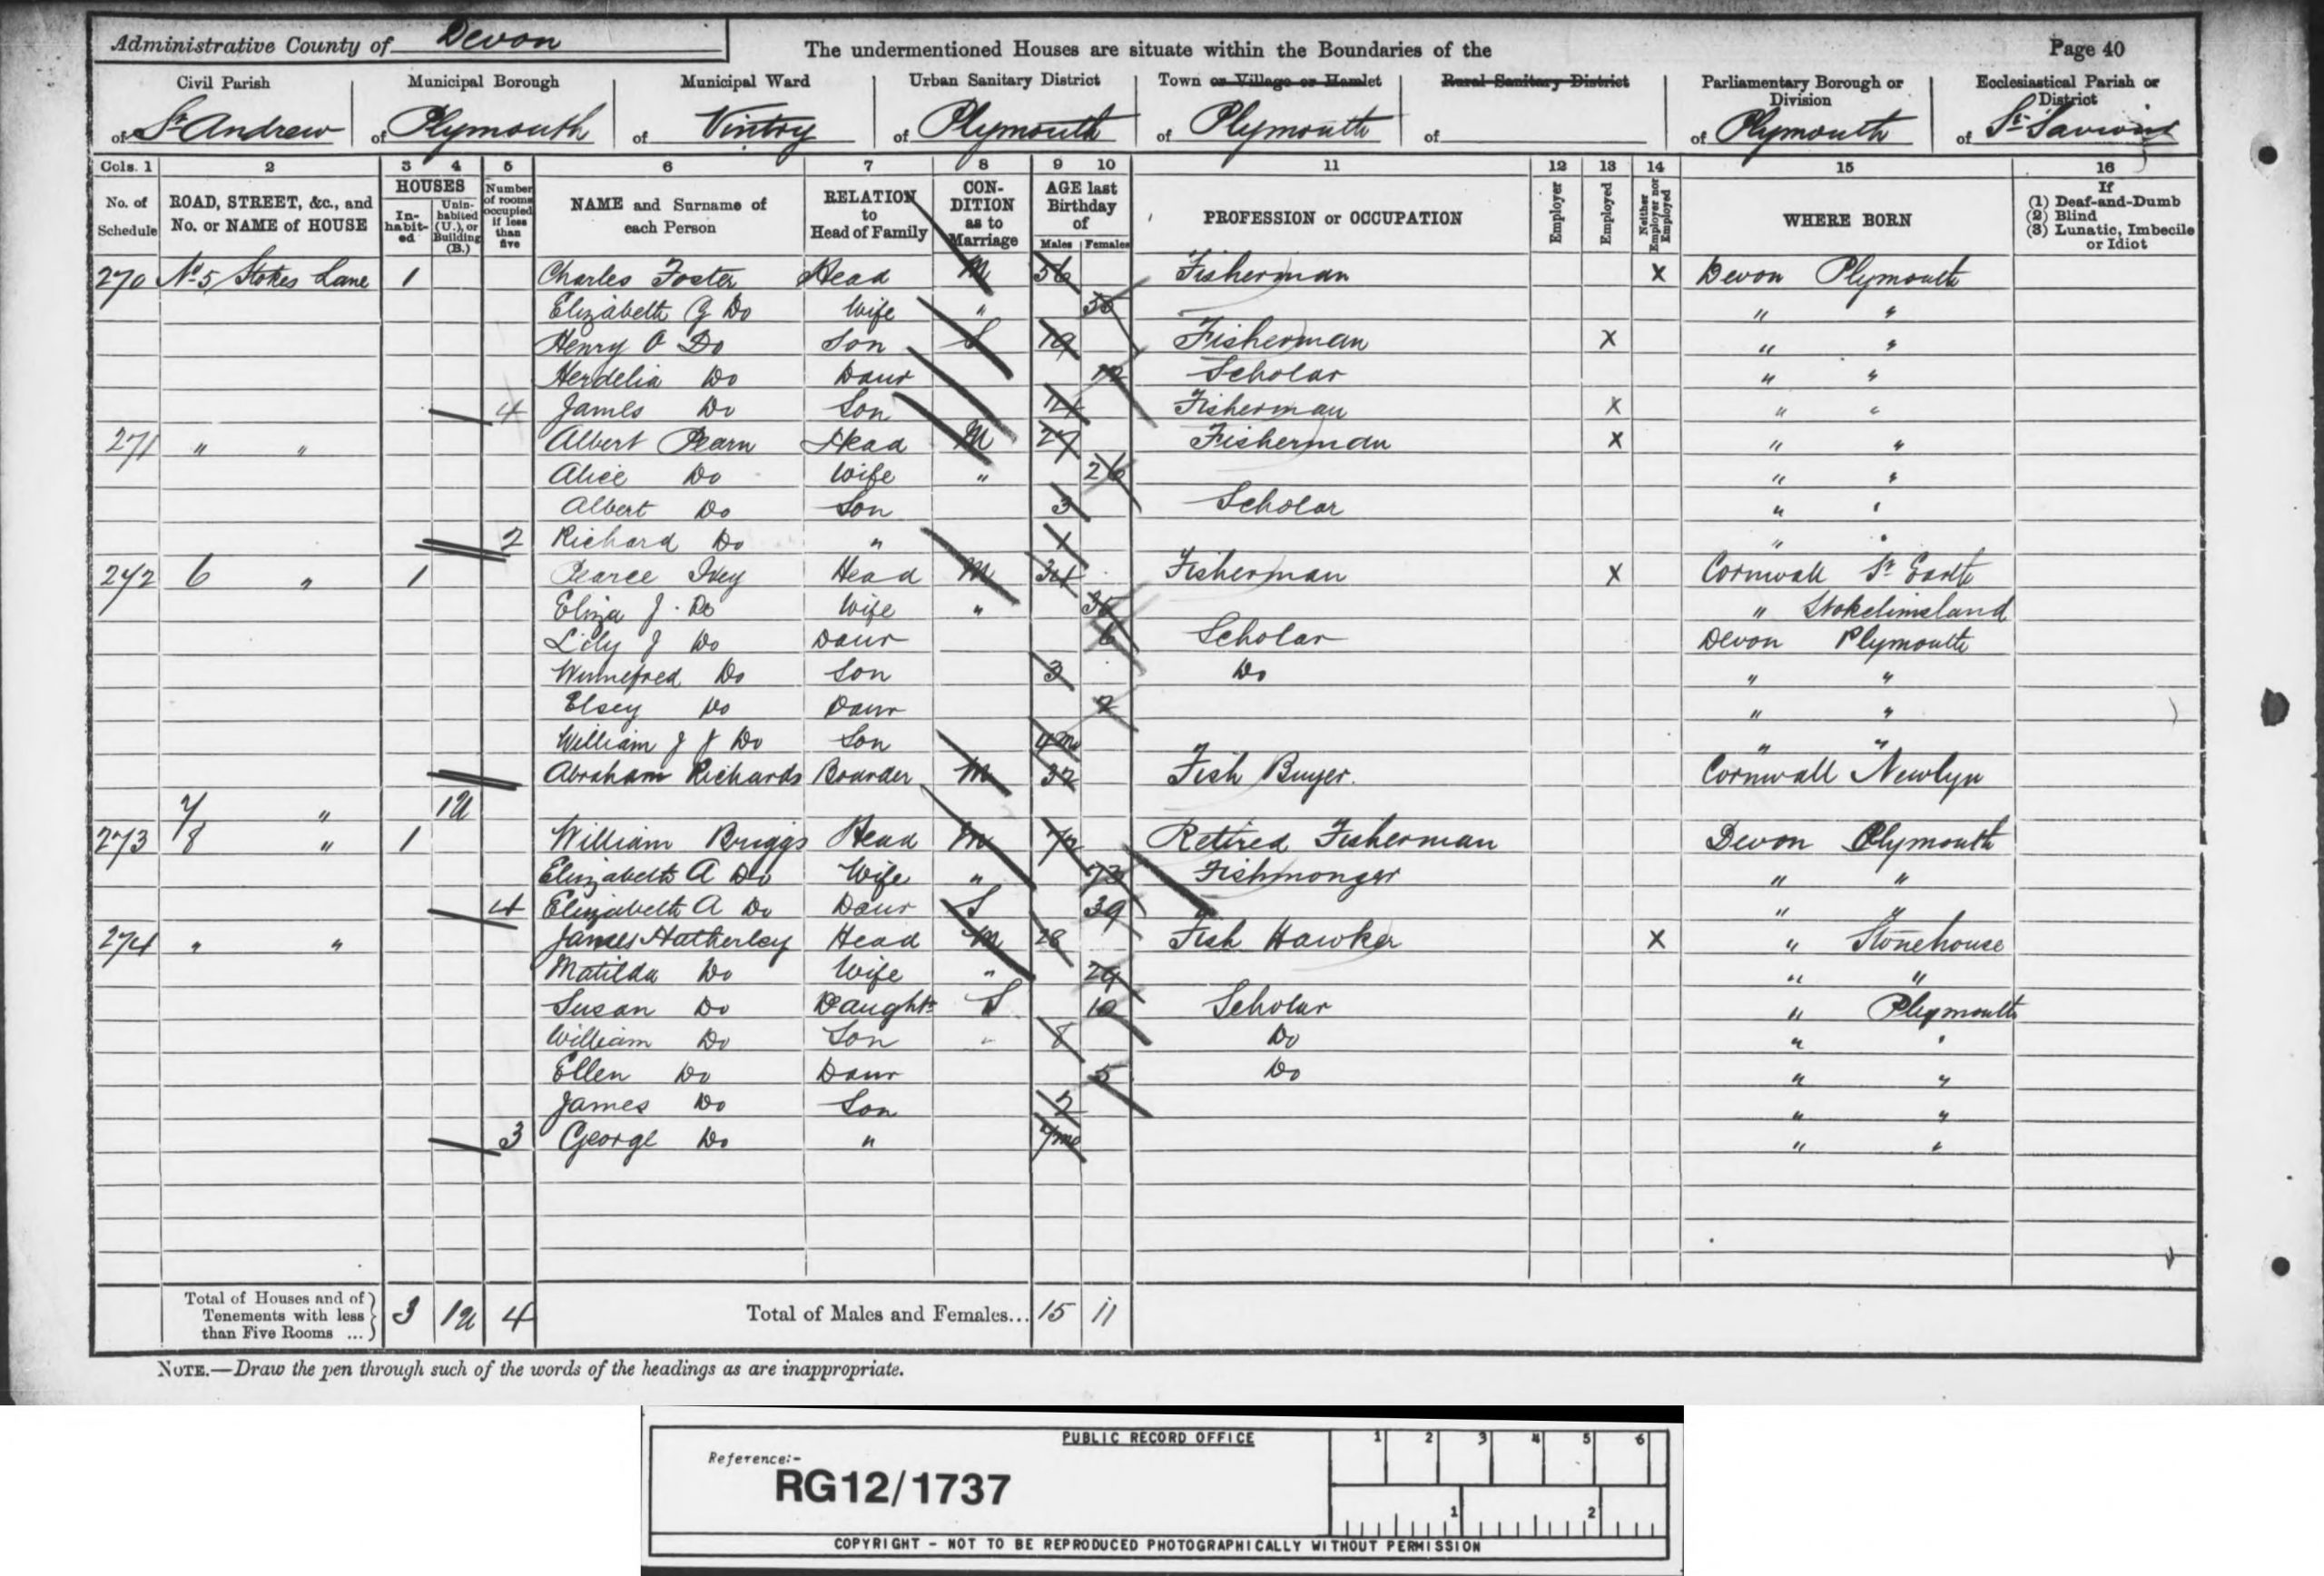 Administrative County of Devon The undermentioned Houses are situate within the Boundaries of the Page 40
Civil Parish Municipal Borough Municipal Ward Urban Sanitary District Town or Village or Hamlet Rural Sanitary District Parliamentary Borough or Division Ecclesiastical Parish or District
of St Andrew of Plymouth of Vintry of Plymouth of Plymouth of of Plymouth of St Saviours
Cols. 1 2 3 4 5 6 7 8 9 10 11 12 13 14 15 16
No. of Schedule ROAD, STREET, &c., and No. or NAME of HOUSE HOUSES In-habit-ed Unin-habited (U.), or Building (B.) Number of rooms occupied if less than five NAME and Surname of each Person RELATION to Head of Family CON-DITION as to Marriage AGE last Birthday of Males Females PROFESSION or OCCUPATION Employer Employed Neither Employer nor Employed WHERE BORN If (1) Deaf-and-Dumb (2) Blind (3) Lunatic, Imbecile or Idiot
270 No 5 Stokes Lane 1 Charles Foster Head M 56 Fisherman X Devon Plymouth
Elizabeth G Do Wife " " "
Henry O Do Son S 19 Fisherman X " "
Herdelia Do Daur 12 Scholar " "
4 James Do Son 14 Fisherman X " "
271 " " Albert Pearn Head M 27 Fisherman X " "
Alice Do Wife " 26 " "
Albert Do Son 3 Scholar " "
2 Richard Do " 1 " "
272 6 " 1 Pearce Ivey Head M 34 Fisherman X Cornwall St Earth
Eliza J. Do Wife " " Stokelimsland
Lily J Do Daur 6 Scholar Devon Plymouth
Winnefred Do Son 3 Do " "
Elsey Do Daur 2 " "
William J J Do Son 4 mo " "
Abraham Richards Boarder M 32 Fish Buyer. Cornwall Newlyn
7 " 1U
273 8 " 1 William Briggs Head M 72 Retired Fisherman Devon Plymouth
Elizabeth A Do Wife " 73 Fishmonger " "
4 Elizabeth A Do Daur S 39 " "
274 " " James Hatherley Head M 28 Fish Hawker X " Stonehouse
Matilda Do Wife " 29 " "
Susan Do Daughtr S 10 Scholar " Plymouth
William Do Son " 8 Do " "
Ellen Do Daur 5 Do " "
James Do Son 2 " "
3 George Do " 7 mo " "
Total of Houses and of Tenements with less than Five Rooms ... 3 1U 4 Total of Males and Females... 15 11
NOTE.—Draw the pen through such of the words of the headings as are inappropriate.
PUBLIC RECORD OFFICE 1 2 3 4 5 6
Reference:-
RG12/1737
1 2
COPYRIGHT - NOT TO BE REPRODUCED PHOTOGRAPHICALLY WITHOUT PERMISSION